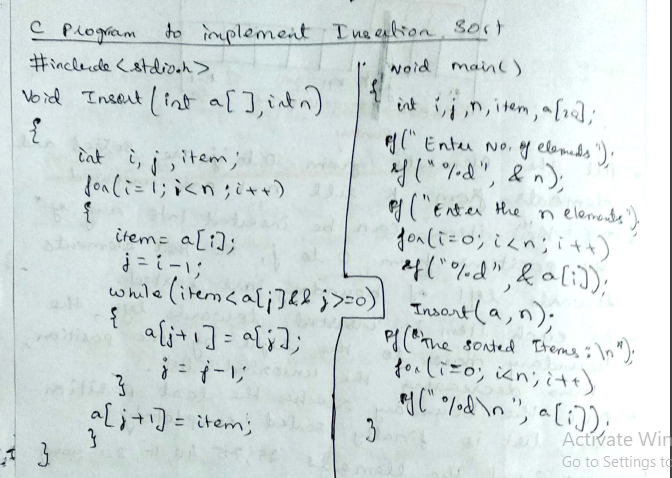 C Program to implement Insertion Sort
#include<stdio.h>
Void Insort (int a[], int n)
{
int i, j, item;
for(i=1; i<n; i++)
{
item= a[i];
j = i-1;
while (item<a[j]&& j>=0)
{
a[j+1] = a[j];
j = j-1;
}
a[j+1] = item;
}
}
void main()
{
int i,j,n,item,a[20];
pf(" Enter No. of elements");
sf("%d", & n);
pf("Enter the n elements");
for(i=0; i<n; i++)
sf("%d", & a[i]);
Insort(a,n);
pf("The sorted Items:\n");
for(i=0; i<n; i++)
pf("%d\n", a[i]);
}
Activate Win
Go to Settings to